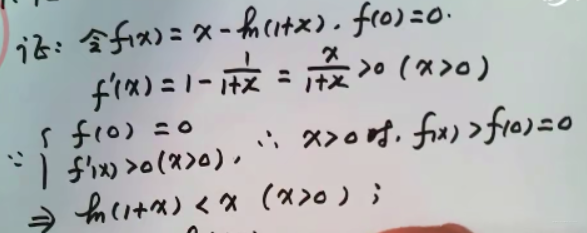 证: 令f(x) = x - ln(1+x). f(0)=0.
f'(x) = 1 - 1/(1+x) = x/(1+x) > 0 (x>0)
∵ { f(0) = 0
f'(x) > 0 (x>0), ∴ x>0时, f(x) > f(0) = 0
⇒ ln(1+x) < x (x>0) ;